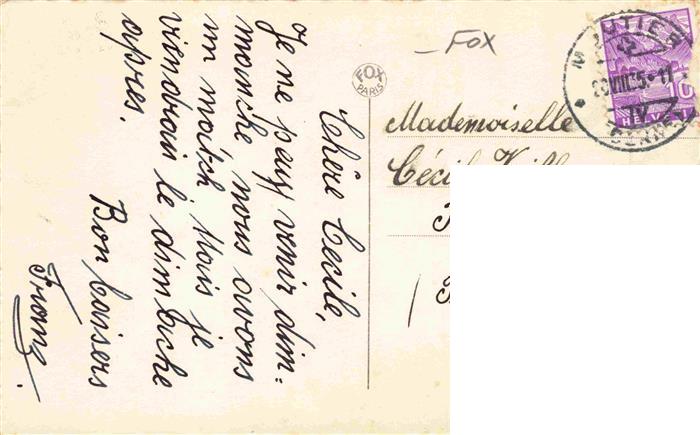 Chère Cecile,
Je ne peux venir dim-
manche nous avons
un match Mais je
viendrais le dimanche
apres.
Bon baisers
Franz.
FOX
PARIS
– FOX
Mademoiselle
Cécile
MOUTIER
10
HELVETIA